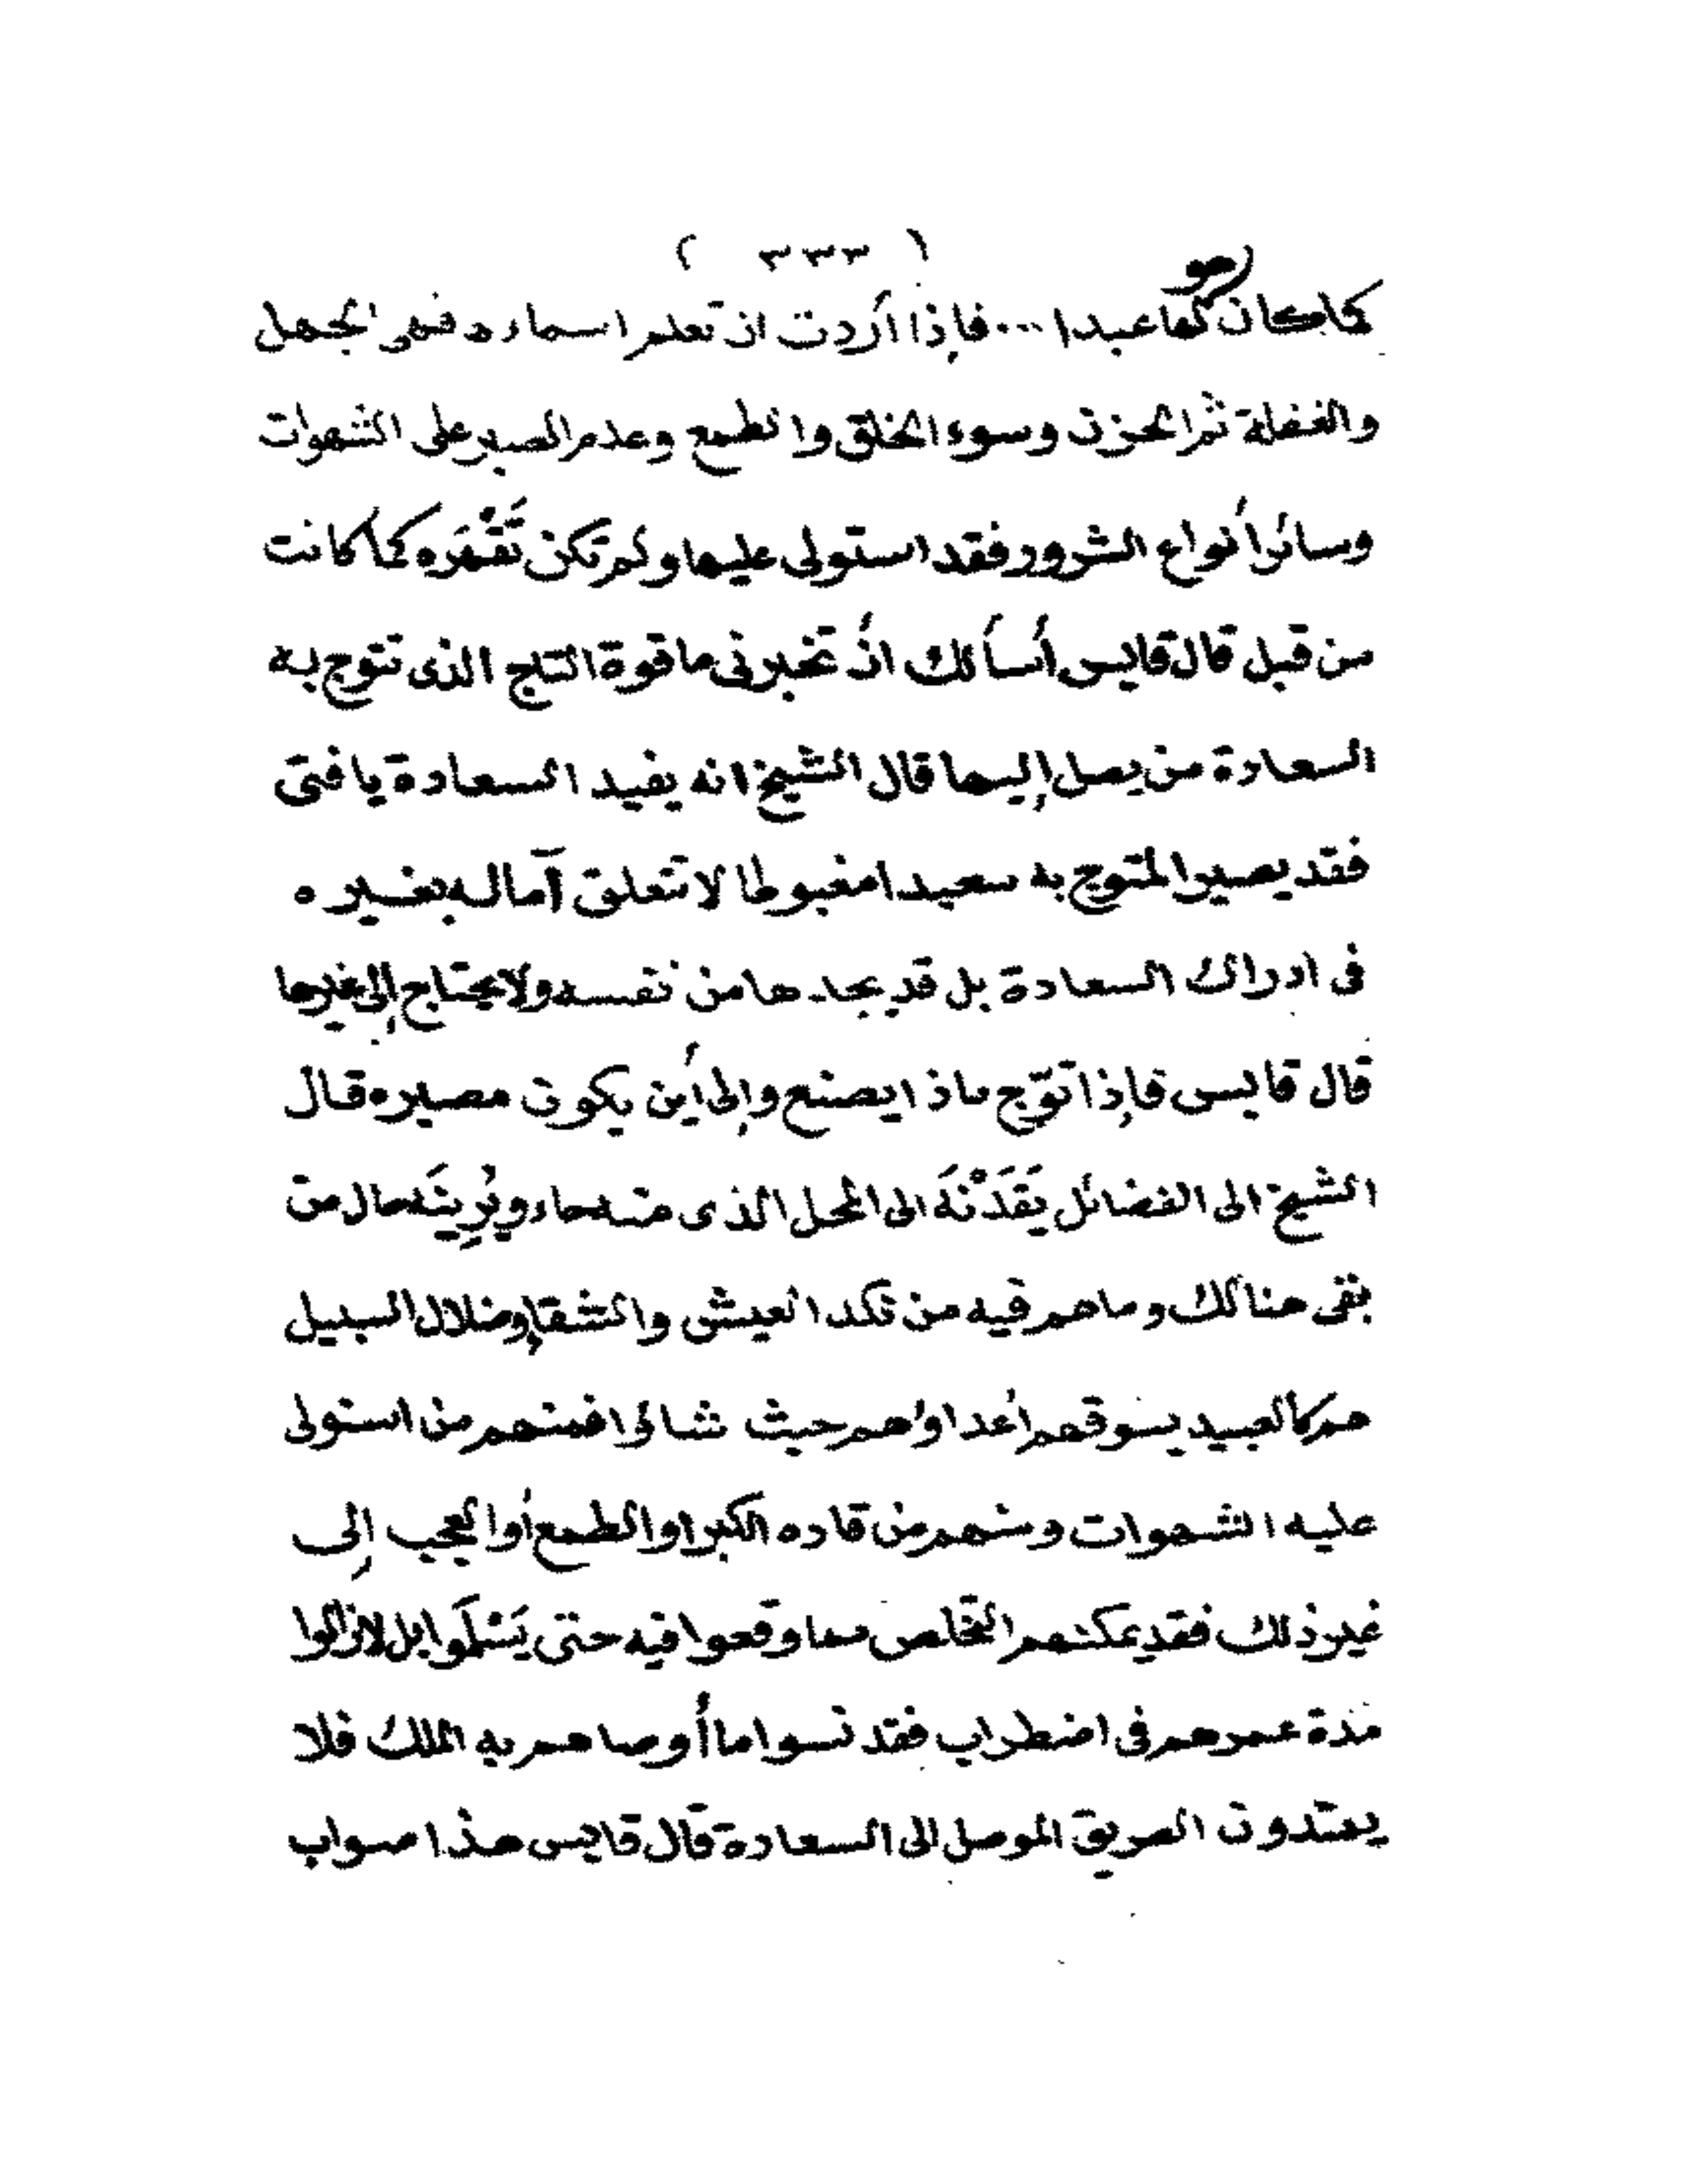 ( ٣٣٣ )
كما كان هو لها عبدا ... فإذا أردت ان تعلم اسماءه فهى الجهل
والغفلة ثم الحزن وسوء الخلق والطمع وعدم الصبر على الشهوات
وسائر أنواع الشرور فقد استولى عليها ولم تكن تَقْهَره كما كانت
من قبل قال قابس أسألك انْ تخبرنى ما قوة التاج الذى تتوج به
السعادة من يصل إليها قال الشيخ انه يفيد السعادة يا فتى
فقد يصير المتوج به سعيدا مغبوطا لا تتعلق آماله بغيره
فى ادراك السعادة بل قد يجدها من نفسه ولا يحتاج إلى غيرها
قال قابس فإذا توّج ماذا يصنع وإلى أين يكون مصيره قال
الشيخ الى الفضائل يَقَدْنَهَ الى المحل الذى منه جاء ويُرِينَه حال من
بقى هنالك وما هم فيه من نكد العيش والشقاء وضلال السبيل
هم كالعبيد يسوقهم أعداؤهم حيث شاؤا فمنهم من استولى
عليه الشهوات ومنهم من قاده الكبر او الطمع أو العجب إلى
غير ذلك فقد يمكنهم التخلص مما وقعوا فيه حتى يَسْلَموا بل لازالوا
مدة عمرهم فى اضطراب فقد نسوا ما أوصاهم به الملك فلا
يهتدون الصريق الموصل الى السعادة قال قابس هذا صواب